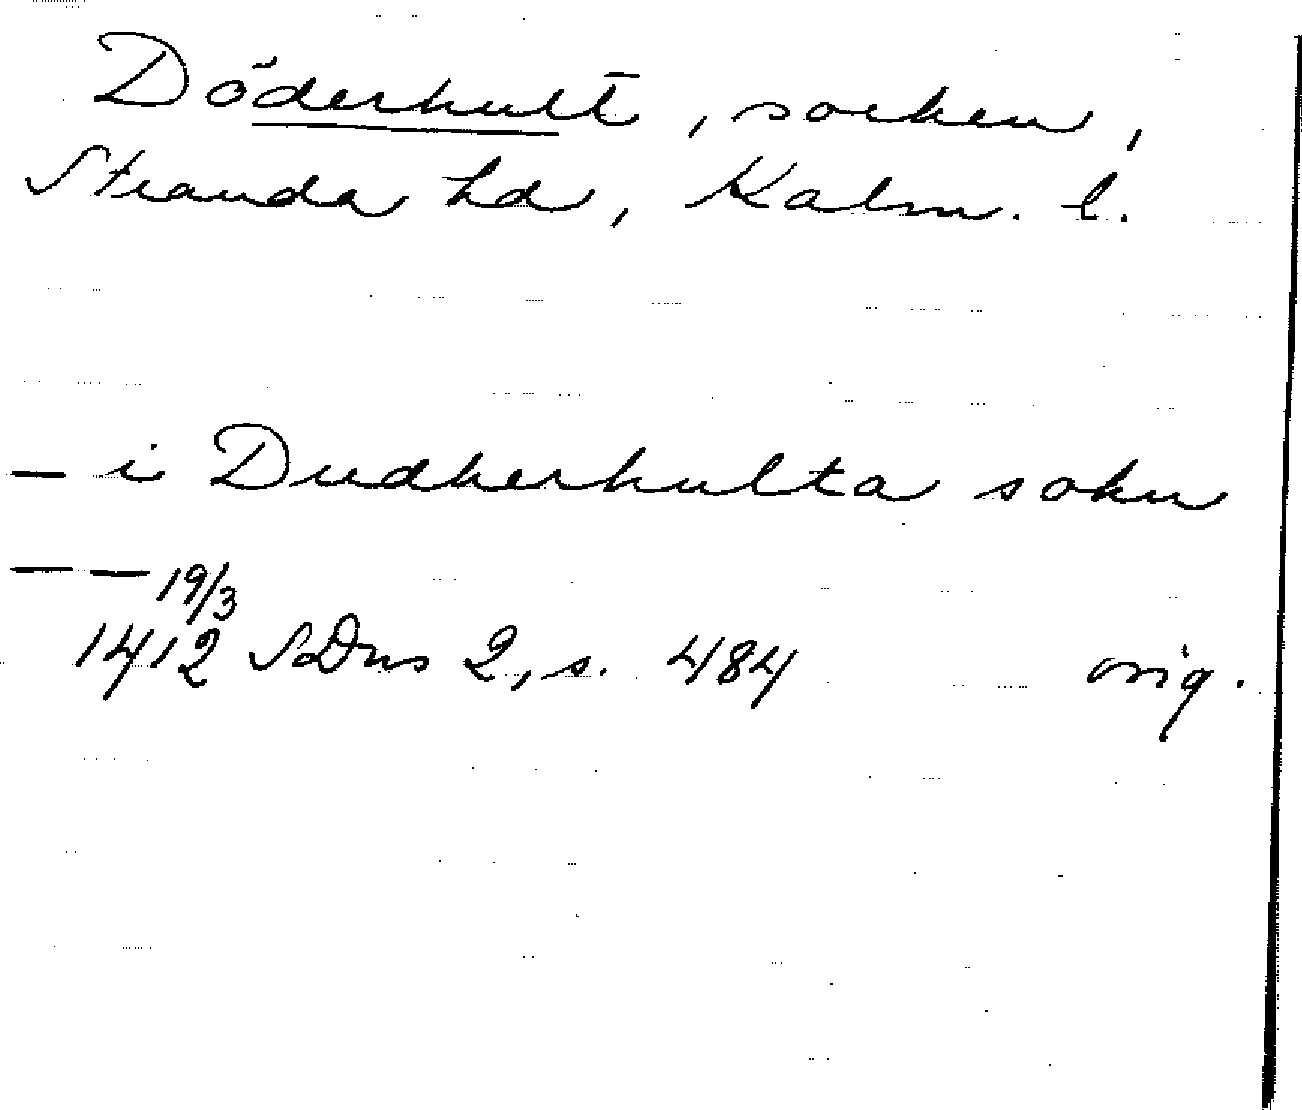 Döderhult, socken,
Stranda hd, Kalm. l.
— i Dudherhulta sokn
— — 19/3
1412 SDns 2, s. 484 orig.